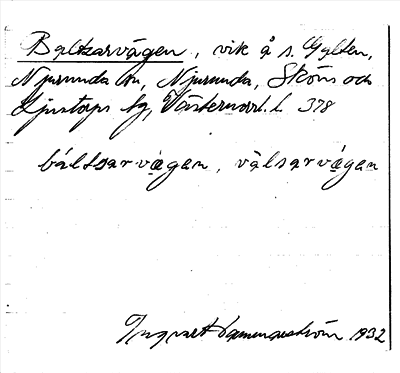 Baltzarvågen, vik å s. Gylten,
Njurunda sn, Njurunda, Sköns och
Ljustorps tg, Västernorrl. l. 378
báltsarvågen,válsarvågen
Ingvar Hammarström 1932